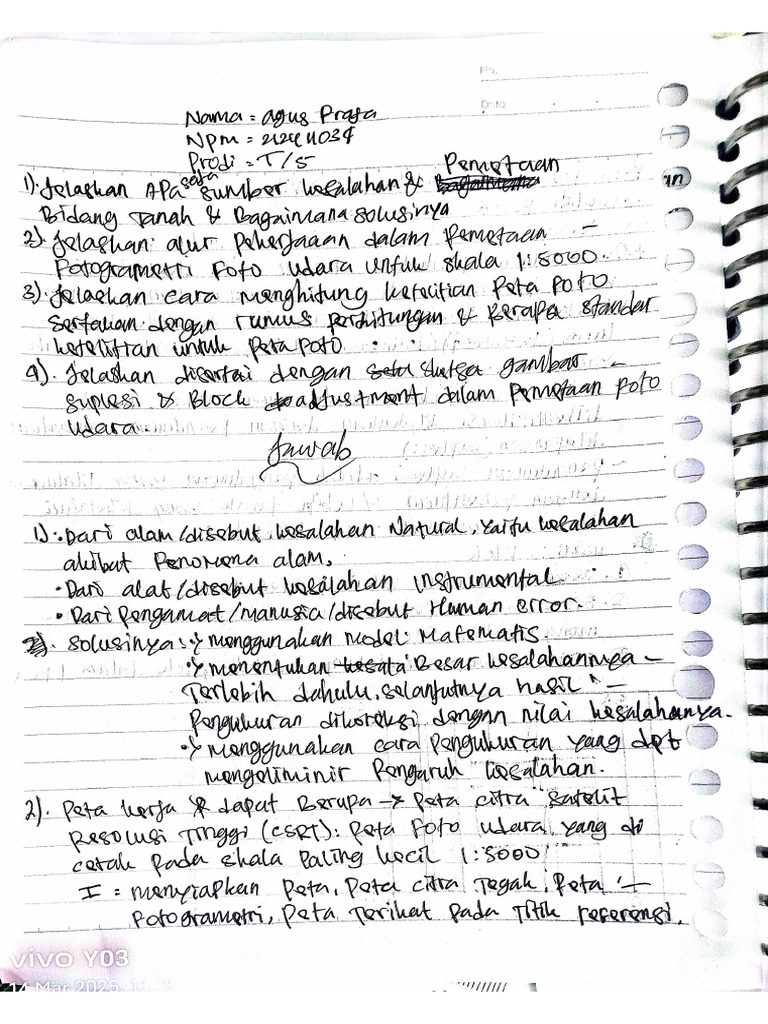 No.
Date
Nama = Agus Praja
Npm = 21244034
Prodi = T/S
1). Jelaskan Apa saja sumber kesalahan & Pemetaan
Bidang Tanah & Bagaimana solusinya
2). Jelaskan alur Pekerjaaan dalam Pemetaan
Fotogrametri Foto udara untuk skala 1:5000.
3). Jelaskan cara menghitung ketelitian Peta Foto
Sertakan dengan rumus perhitungan & Berapa standar
ketelitian untuk Peta Foto
4). Jelaskan disertai dengan sketsa gambar
suplesi & Block adjustment dalam Pemetaan Foto
udara
Jawab
1) • Dari alam/disebut kesalahan Natural, yaitu kesalahan
akibat Fenomena alam.
• Dari alat/disebut kesalahan instrumental
• Dari Pengamat/manusia/disebut Human error.
solusinya : • menggunakan model Matematis
• menentukan Besar kesalahannya –
Terlebih dahulu, selanjutnya hasil –
Pengukuran dikoreksi dengan nilai kesalahanya.
• menggunakan cara Pengukuran yang dpt
mengeliminir Pengaruh kesalahan.
2). Peta kerja dapat Berupa → Peta citra satelit
Resolusi Tinggi (CSRT): Peta Foto udara yang di
cetak Pada skala Paling kecil 1:5000
I = menyiapkan Peta, Peta citra Tegak, Peta –
Fotogrametri, Peta Terikat Pada Titik referensi.
vivo Y03
14 Mar 2025,